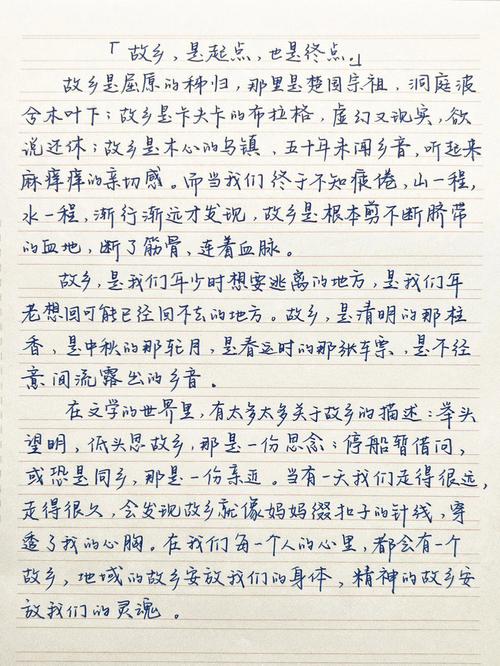 「故乡，是起点，也是终点。」
故乡是屈原的秭归，那里是楚国宗祖，洞庭波
兮木叶下；故乡是卡夫卡的布拉格，虚幻又现实，欲
说还休；故乡是木心的乌镇，五十年未闻乡音，听起来
麻痒痒的亲切感。而当我们终于不知疲倦，山一程，
水一程，渐行渐远才发现，故乡是根本剪不断脐带
的血地，断了筋骨，连着血脉。
故乡，是我们年少时想要逃离的地方，是我们年
老想回可能已经回不去的地方。故乡，是清明的那柱
香，是中秋的那轮月，是春运时的那张车票，是不经
意间流露出的乡音。
在文学的世界里，有太多太多关于故乡的描述：举头
望明，低头思故乡，那是一份思念；停船暂借问，
或恐是同乡，那是一份亲近。当有一天我们走得很远，
走得很久，会发现故乡就像妈妈缀扣子的针线，穿
透了我的心胸。在我们每一个人的心里，都会有一个
故乡，地域的故乡安放我们的身体，精神的故乡安
放我们的灵魂。